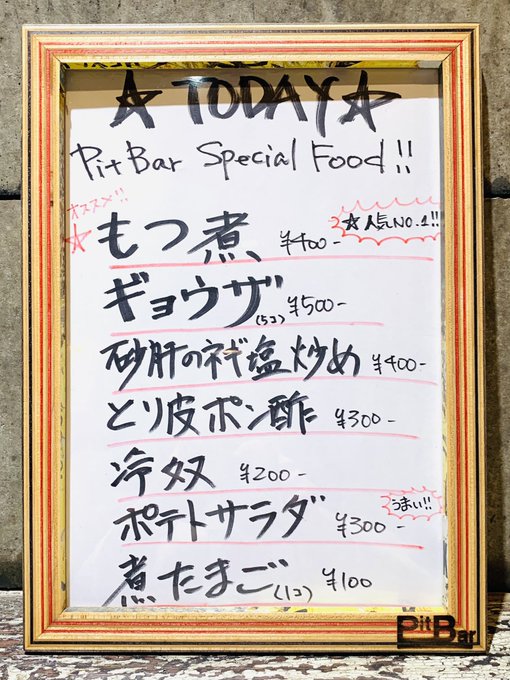 ☆ TODAY ☆
Pit Bar Special Food!!
オススメ!!
☆ もつ煮 ¥400-
☆人気NO.1!!
ギョウザ(5コ) ¥500-
砂肝のネギ塩炒め ¥400-
とり皮ポン酢 ¥300-
冷奴 ¥200-
ポテトサラダ ¥300-
うまい!!
煮たまご(1コ) ¥100
Pit Bar